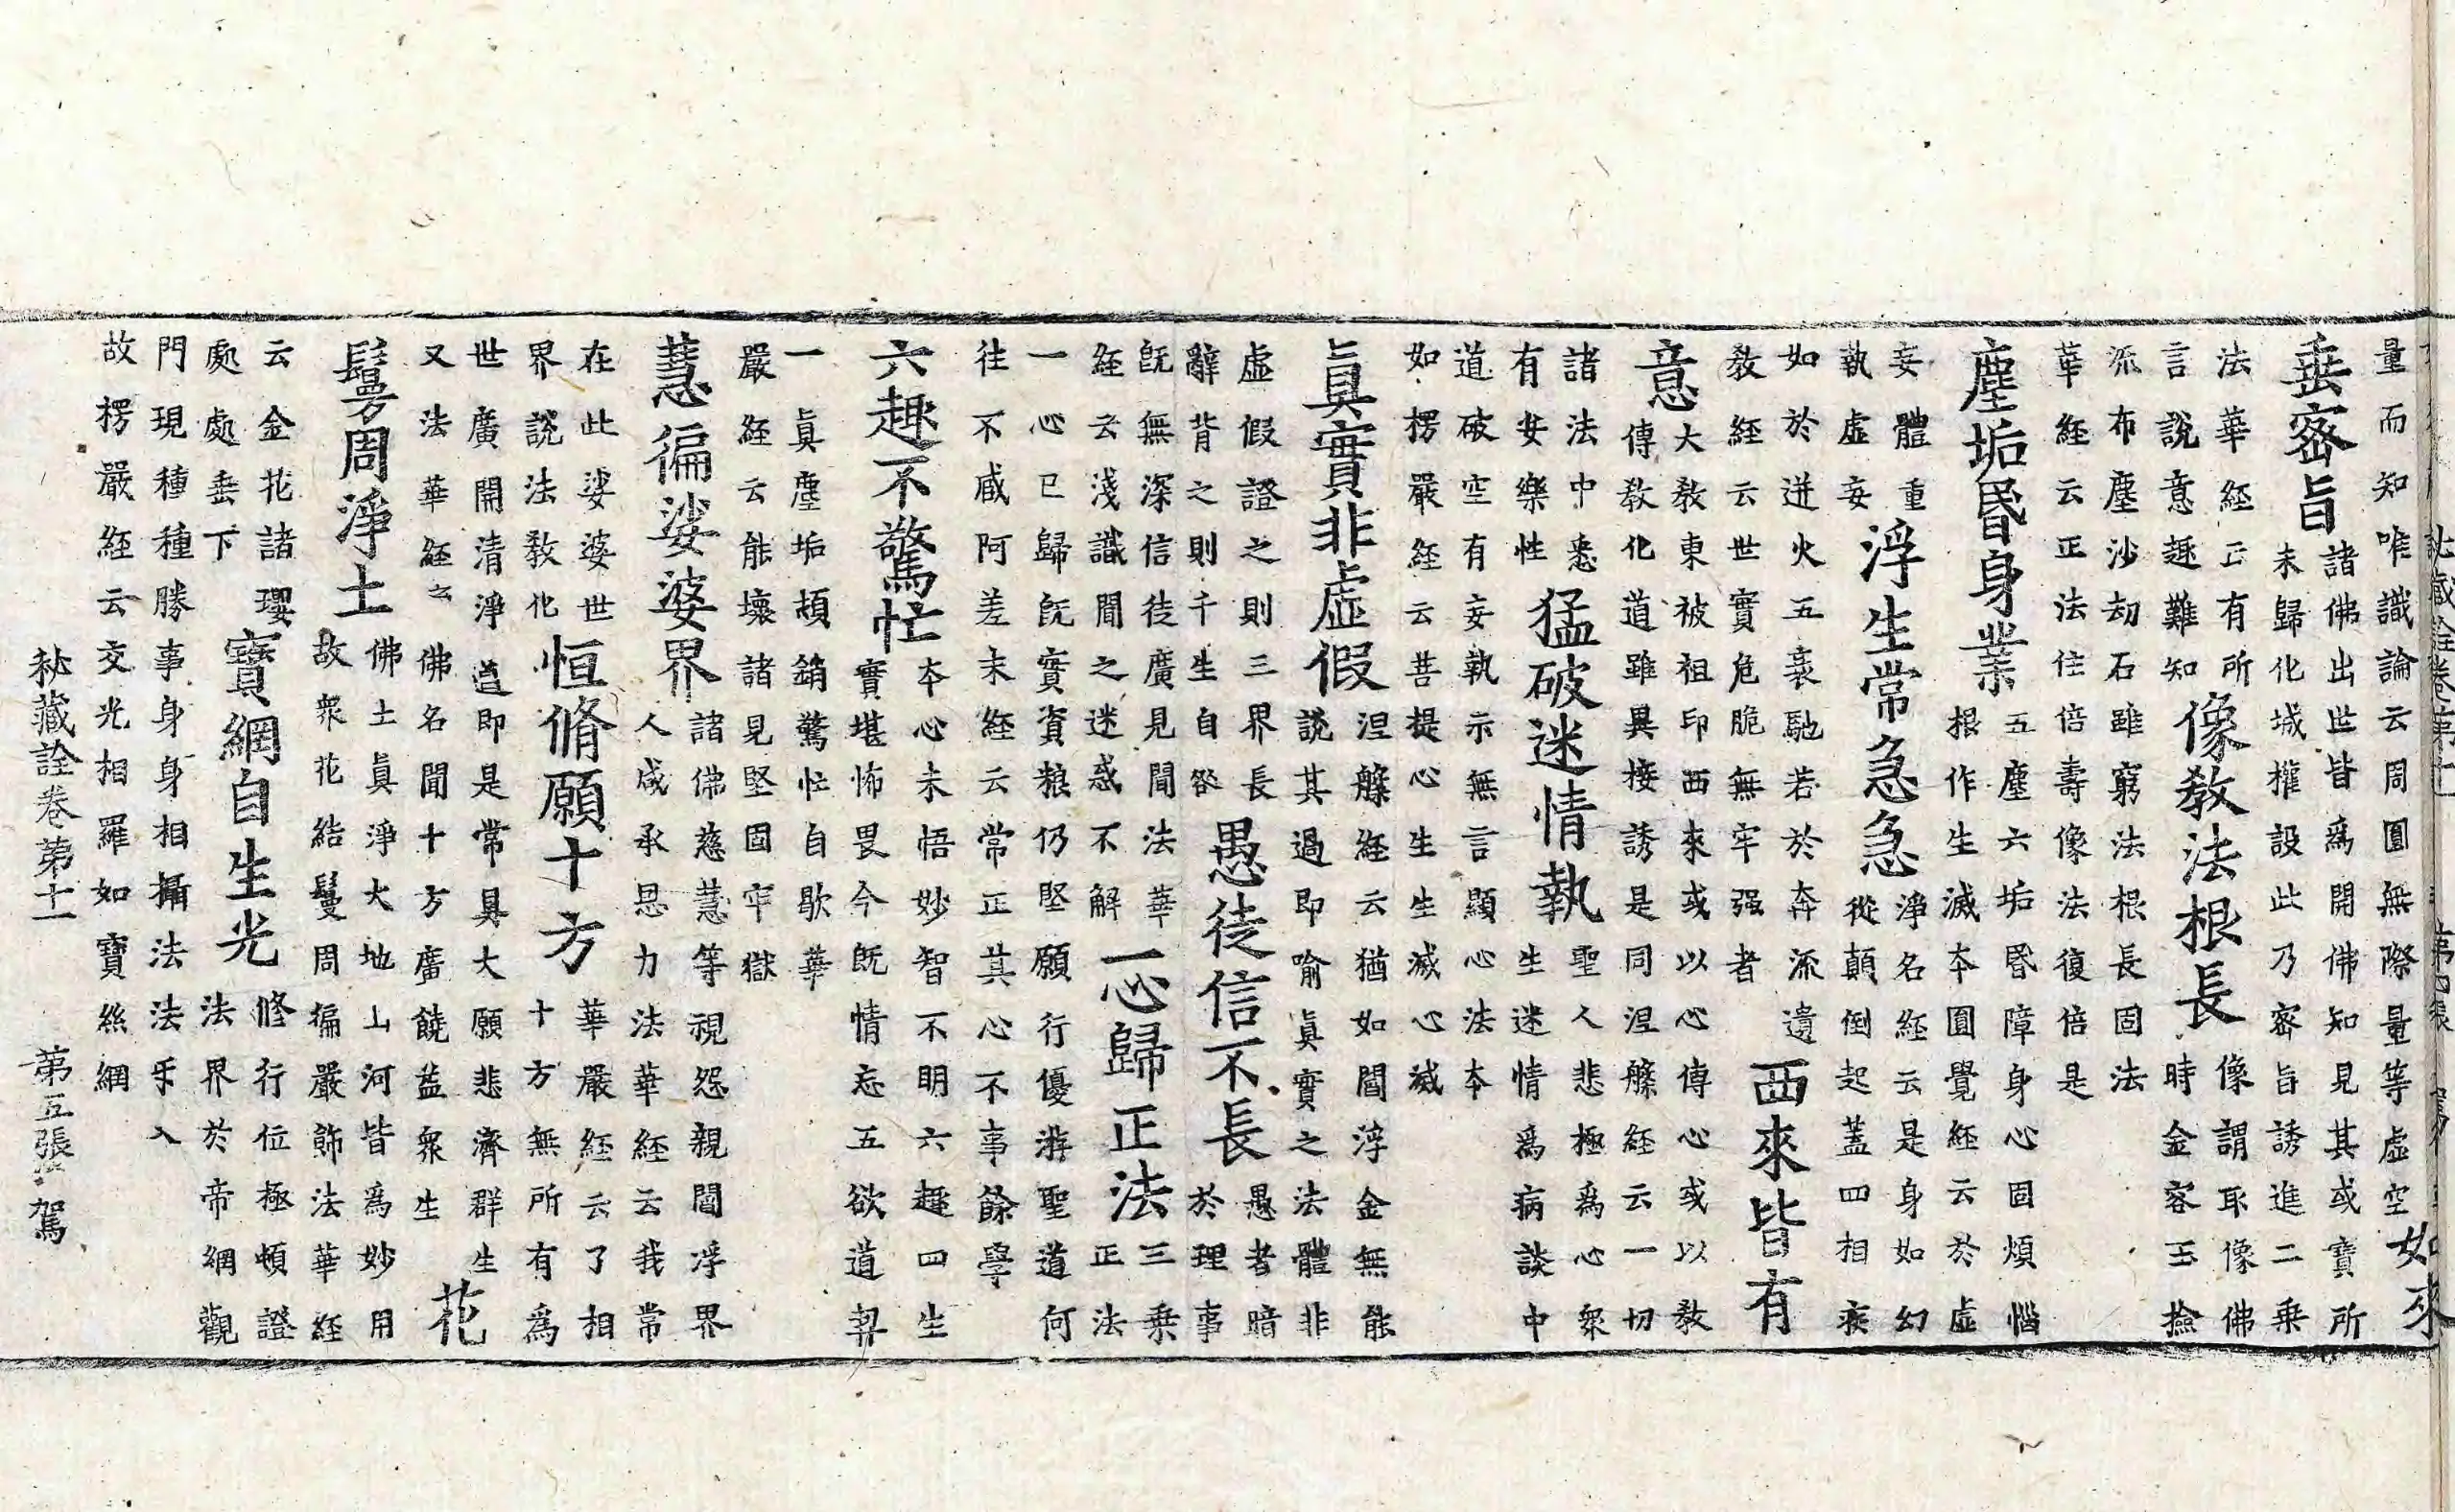 量而知唯識論云周圓無際量等虛空
如來
垂密旨
諸佛出世皆爲開佛知見其或寶所
未歸化城權設此乃密旨誘進二乗
法華經云有所
言說意趣難知
像教法根長
像謂取像佛
時金容玉撿
流布塵沙劫石雖窮法根長固法
華經云正法住倍壽像法復倍是
塵垢昬身業
五塵六垢昬障身心固煩惱
根作生滅夲圓覺經云於虛
妄體重
執虛妄
浮生常急急
淨名經云是身如幻
從顛倒起蓋四相疾
如於迸火五衰馳若於奔流遺
教經云世實危脆無牢强者
西來皆有
意
大教東被祖印西來或以心傳心或以教
傳教化道雖異接誘是同涅槃經云一切
諸法中悉
有安樂性
猛破迷情執
聖人悲極爲心衆
生迷情爲病談中
道破空有妄執示無言顯心法夲
如楞嚴經云菩提心生生滅心滅
眞實非虛假
涅槃經云猶如閻浮金無能
說其過即喻眞實之法體非
虛假證之則三界長
辭背之則千生自咎
愚徒信不長
愚者暗
於理事
既無深信徒廣見聞法華
經云淺識聞之迷惑不解
一心歸正法
三乗
正法
一心已歸既實資粮仍堅願行優游聖道何
往不咸阿差末經云常正其心不事餘學
六趣不驚忙
夲心未悟妙智不明六趣四生
實堪怖畏今既情忘五欲道契
一眞塵垢頓銷驚忙自歇華
嚴經云能壞諸見堅固牢獄
慧徧娑婆界
諸佛慈慧等視怨親閻浮界
人咸承恩力法華經云我常
在此娑婆世
界說法教化
恒脩願十方
華嚴經云了相
十方無所有爲
世廣開清淨道即是常具大願悲濟群生
又法華經云佛名聞十方廣饒益衆生
花
鬘周淨土
佛土眞淨大地山河皆爲妙用
故衆花結鬘周徧嚴飾法華經
云金花諸瓔
處處垂下
寶網自生光
修行位極頓證
法界於帝網觀
門現種種勝事身身相攝法法手入
故楞嚴經云交光相羅如寶絲網
秘藏詮卷第十一 第五張 駕